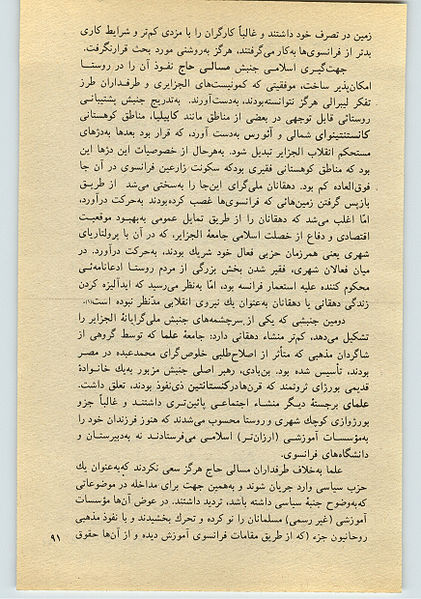 زمین در تصرف خود داشتند و غالباً کارگران را با مزدی کم‌تر و شرایط کاری
بدتر از فرانسوی‌ها به‌کار می‌گرفتند، هرگز به‌روشنی مورد بحث قرارنگرفت.
جهت‌گیری اسلامی جنبش مسالی حاج نفوذ آن را در روستا
امکان‌پذیر ساخت، موفقیتی که کمونیست‌های الجزایری و طرفداران طرز
تفکر لیبرالی هرگز نتوانسته‌بودند، به‌دست‌آورند. به‌تدریج جنبش پشتیبانی
روستائی قابل توجهی در بعضی از مناطق مانند کابیلیا، مناطق کوهستانی
کانستنتینوای شمالی و آئورس به‌دست آورد، که قرار بود بعدها به‌دژهای
مستحکم انقلاب الجزایر تبدیل شود. به‌هرحال از خصوصیات این دژها این
بود که مناطق کوهستانی فقیری بودکه سکونت زارعین فرانسوی در آن جا
فوق‌العاده کم بود. دهقانان ملی‌گرای این‌جا را به‌سختی می‌شد از طریق
بازپس گرفتن زمین‌هائی که فرانسوی‌ها غصب کرده‌بودند به‌حرکت درآورد،
امّا اغلب می‌شد که دهقانان را از طریق تمایل عمومی به‌بهبود موقعیت
اقتصادی و دفاع از خصلت اسلامی جامعهٔ الجزایر، که در آن با پرولتاریای
شهری یعنی همرزمان حزبی فعال خود شریك بودند، به‌حرکت درآورد. در
میان فعالان شهری، فقیر شدن بخش بزرگی از مردم روستا ادعانامه‌ئی
محکوم کننده علیه استعمار فرانسه بود، امّا به‌نظر می‌رسید که ایدآلیزه کردن
زندگی دهقانی یا دهقانان به‌عنوان یك نیروی انقلابی مدّنظر نبوده است
دومین جنبشی که یکی از سرچشمه‌های جنبش ملی‌گرایانهٔ الجزایر را
تشکیل می‌دهد، کم‌تر منشاء دهقانی دارد: جامعهٔ علما که توسط گروهی از
شاگردان مذهبی که متأثر از اصلاح‌طلبی خلوص‌گرای محمدعبده در مصر
بودند، تأسیس شده بود. بن‌بادی، رهبر اصلی جنبش مزبور به‌یك خانوادهٔ
قدیمی بورژای ثروتمند که قرن‌ها در کنستانتین ذی‌نفوذ بودند، تعلق داشت.
علمای برجستهٔ دیگر منشاء اجتماعی پائین‌تری داشتند و غالباً جزو
بورژوازی کوچك شهری و روستا محسوب می‌شدند که هنوز فرزندان خود را
به‌مؤسسات آموزشی (ارزان‌تر) اسلامی می‌فرستادند نه به‌دبیرستان و
دانشگاه‌های فرانسوی.
علما به‌خلاف طرفداران مسالی حاج هرگز سعی نکردند که‌به‌عنوان یك
حزب سیاسی وارد جریان شوند و به‌همین جهت برای مداخله در موضوعاتی
که‌به‌وضوح جنبهٔ سیاسی داشته باشد، تردید داشتند. در عوض آن‌ها مؤسسات
آموزشی (غیر رسمی) مسلمانان را نو کرده و تحرك بخشیدند و با نفوذ مذهبی
روحانیون جزء (که از طریق مقامات فرانسوی آموزش دیده و از آن‌ها حقوق
۹۱